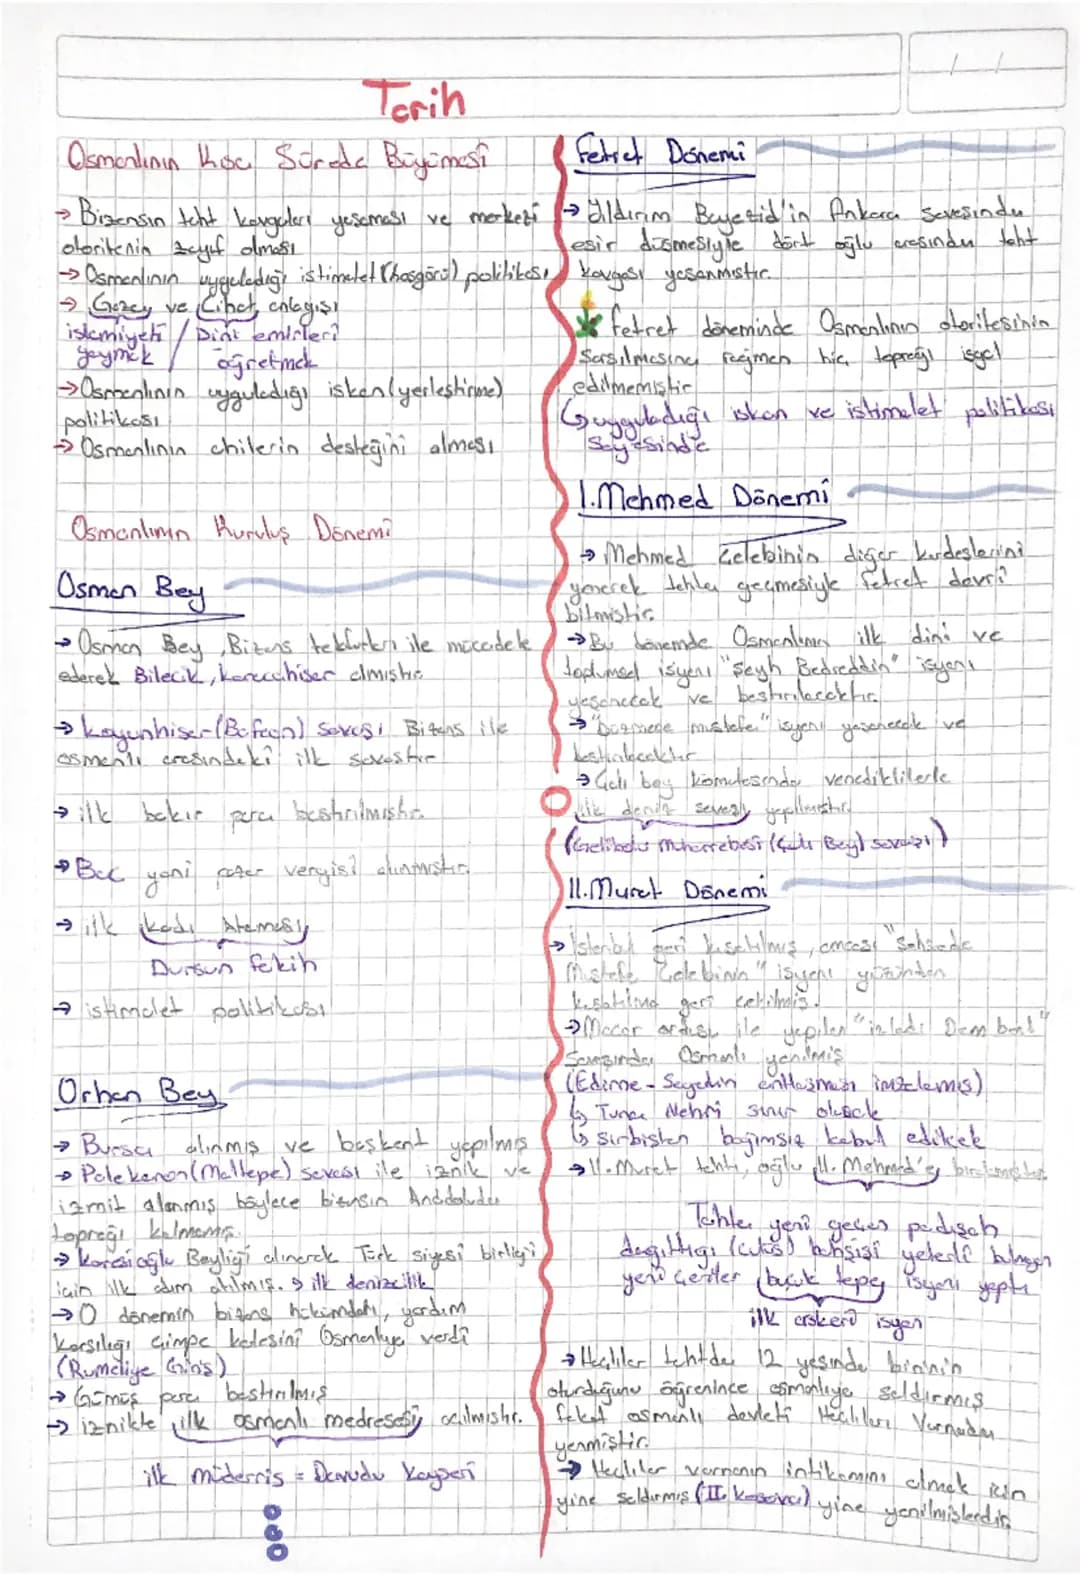 Tarih
Osmanlının Kısa Sürede Büyümesi
→ Bizansın taht kavgaları yaşaması ve merkezi
otoritenin zayıf olması
→ Osmanlının uyguladığı istimalet (hoşgörü) politikası
→ Gaza ve Cihat anlayışı
islamiyeti / Dini emirleri
yaymak / öğretmek
→ Osmanlının uyguladığı iskan (yerleştirme)
politikası
→ Osmanlının ahilerin desteğini alması
Osmanlının Kuruluş Dönemi
Osman Bey
→ Osman Bey, Bizans tekfurları ile mücadele
ederek Bilecik, karacahisar almıştır.
→ koyunhisar (Bafeon) savaşı Bizans ile
osmanlı arasındaki ilk savaştır
→ ilk bakır para bastırılmıştır.
→ Bac yani pazar vergisi alınmıştır.
→ ilk kadı Ataması
Dursun fakih
→ istimalet politikası
Orhan Bey
→ Bursa alınmış ve başkent yapılmış
→ Palekanon (Maltepe) savaşı ile iznik ve
izmit alınmış böylece bizansın Anadoluda
toprağı kalmamış
→ karesioğlu Beyliği alınarak Türk siyasi birliği
için ilk adım atılmış. → ilk denizcilik
→ O dönemin bizans hükümdarı, yardım
karşılığı Çimpe kalesini Osmanlıya verdi
(Rumeliye Giriş)
→ Gümüş para bastırılmış
→ iznikte ilk osmanlı medresesi açılmıştır.
ilk müderris = Davudu Kayseri
Fetret Dönemi
→ Yıldırım Bayezid'in Ankara savaşında
esir düşmesiyle dört oğlu arasında taht
kavgası yaşanmıştır.
fetret döneminde Osmanlının otoritesinin
sarsılmasına rağmen hiç toprağı işgal
edilmemiştir
↳ uyguladığı iskan ve istimalet politikası
sayesinde
I.Mehmed Dönemi
→ Mehmed Çelebinin diğer kardeşlerini
yenerek tahta geçmesiyle fetret devri
bitmiştir.
→ Bu dönemde Osmanlının ilk dini ve
toplumsal isyanı "Şeyh Bedreddin" isyanı
yaşanacak ve bastırılacaktır.
→ "Düzmece mustafa" isyanı yaşanacak ve
bastırılacaktır
→ Çalı bey komutasında venediklilerle
ilk deniz savaşı yapılmıştır.
(Gelibolu muharrebesi (Çalı Bey) savaşı)
II.Murat Dönemi
→ İstanbul geri kuşatılmış, amcası "Şehzade
Mustafa Çelebinin" isyanı yüzünden
kuşatılma geri çekilmiş.
→ Macar ordusu ile yapılan "izladi Dem bont"
Savaşında Osmanlı yenilmiş
(Edirne - Segedin antlaşması imzalamış)
↳ Tuna Nehri sınır olacak
↳ sırbistan bağımsız kabul edilcek
→ II. Murat tahtı, oğlu II. Mehmed'e bırakmıştır.
Tahta yeni geçen padişah
dağıttığı (cülüs) bahşişi yeterli bulmayan
yeni çeriler (buçuk tepe) isyanı yaptı
ilk askeri isyan
→ Haçlılar tahtda 12 yaşında birinin
oturduğunu öğrenince osmanlıya saldırmış
fakat osmanlı devleti Haçlıları Varnada
yenmiştir.
→ Haçlılar varnanın intikamını almak için
yine saldırmış (II. kosova) yine yenilmişlerdir.